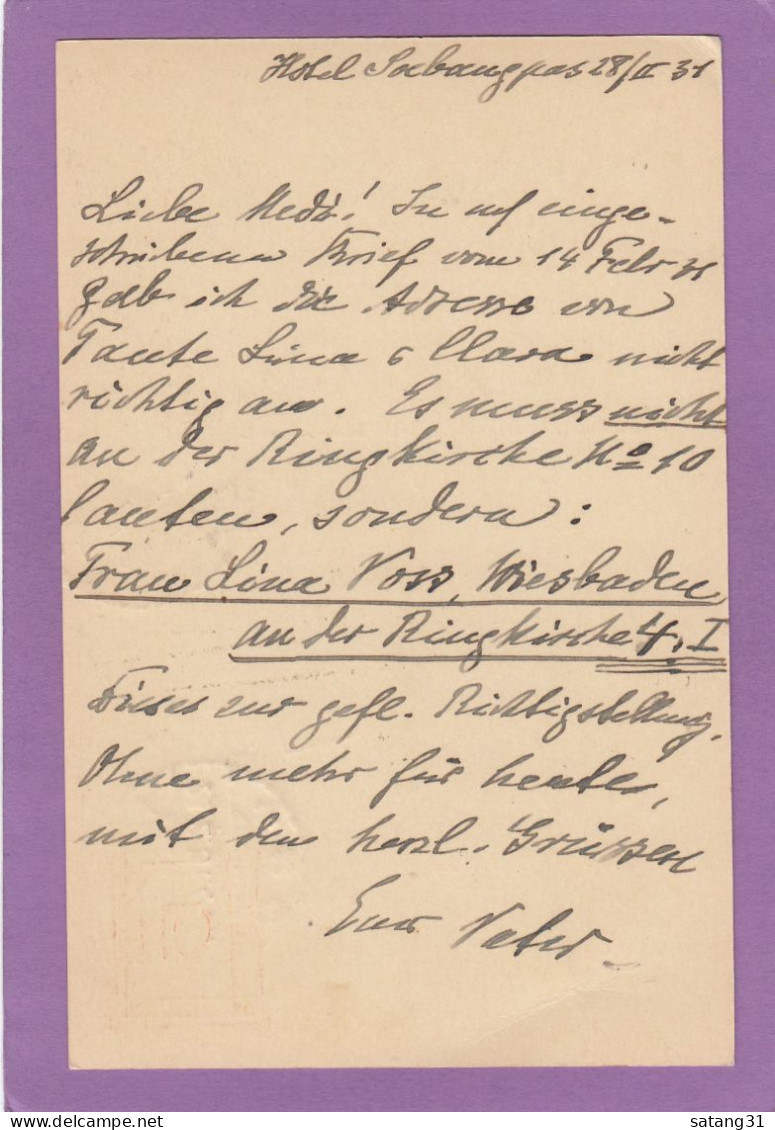 Hotel Soebangpas 28/II 31
Liebe Medi! In  einge-
schriebenen Brief vom 14 Febr 31
gab ich die Adresse von
Tante Lina & Clara nicht
richtig an. Es muss nicht
an der Ringkirche No 10
lauten, sondern:
Frau Lina Voss, Wiesbaden
an der Ringkirche 4, I
Dieses zur gefl. Richtigstellung.
Ohne mehr für heute,
mit den herzl. Grüssen
Euer Vater
satang31